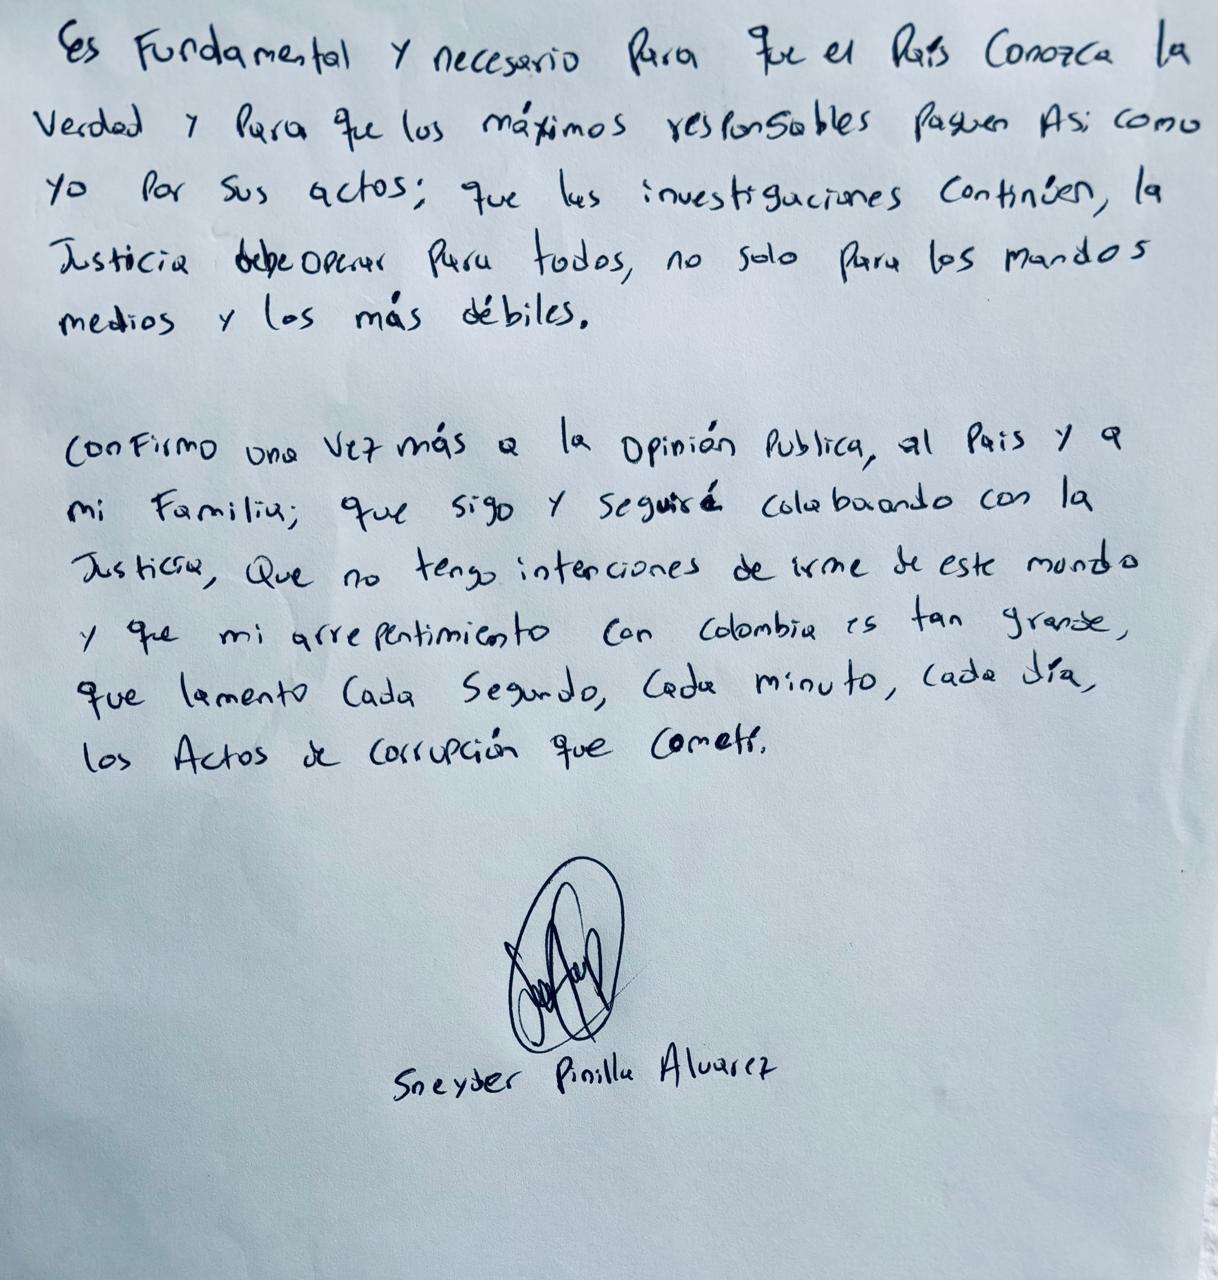 Es Fundamental y necesario Para que el País Conozca la
Verdad y Para que los máximos responsables Paguen Asi como
yo Por sus actos; que las investigaciones Continúen, la
Justicia debe operar Para todos, no solo Para los mandos
medios y los más débiles.
Confirmo una vez más a la Opinión Publica, al Pais y a
mi Familia; que sigo y seguiré colaborando con la
Justicia, Que no tengo intenciones de irme de este mundo
y que mi arrepentimiento con Colombia es tan grande,
que lamento Cada Segundo, Cada minuto, Cada día,
los Actos de corrupción que Cometí.
Sneyder Pinilla Alvarez